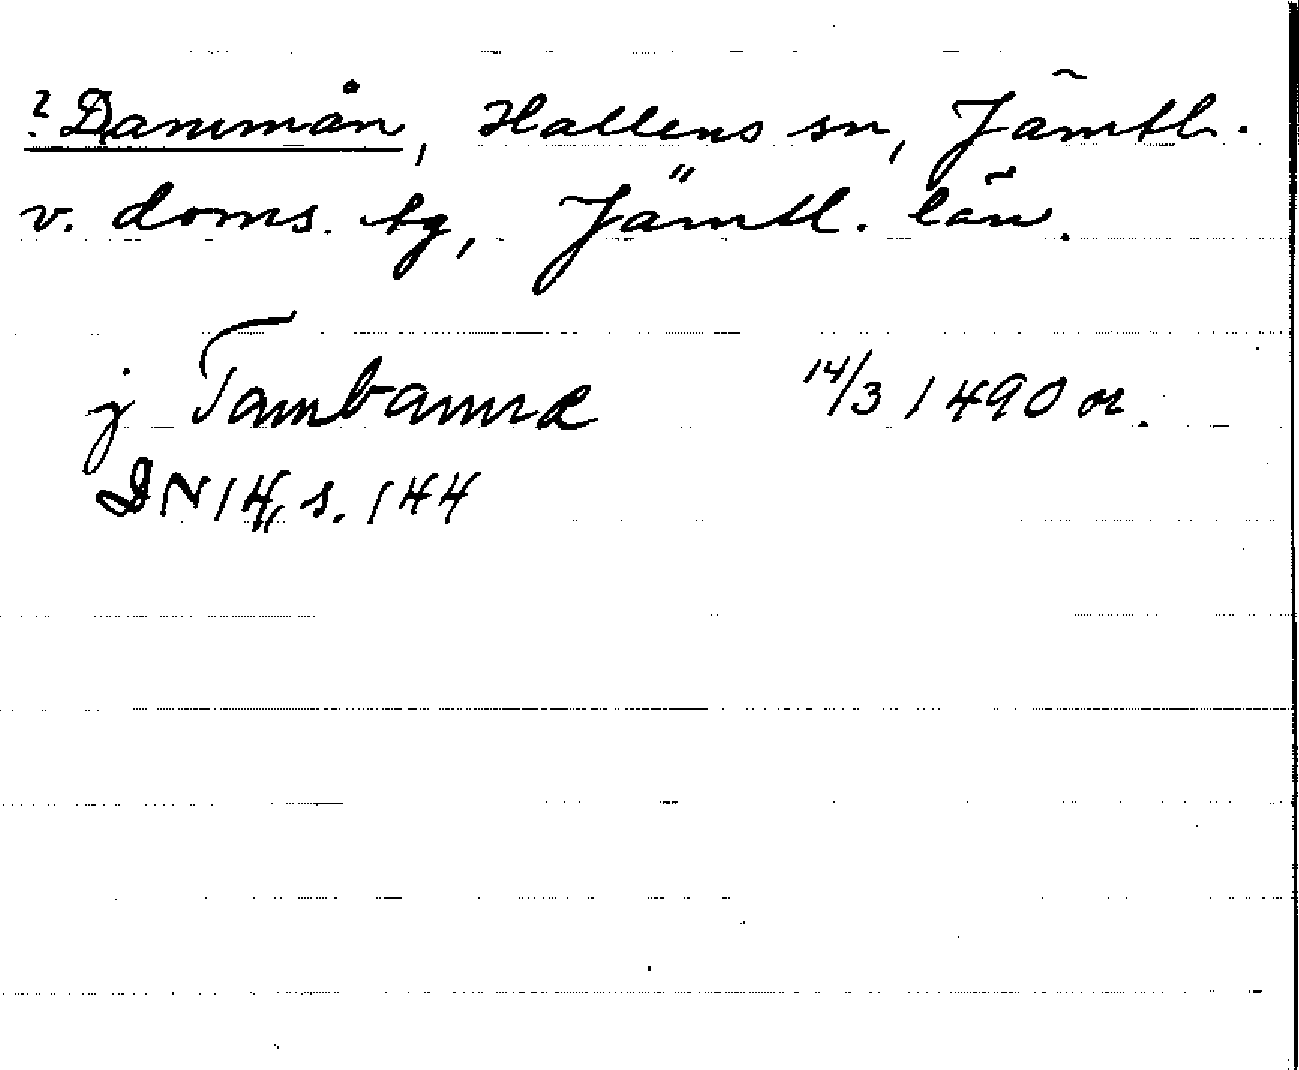 ? Dammån, Hallens sn, Jämtl.
v. doms. tg, Jämtl. län.
j Tambamæ 14/3 1490 or.
DN 14, s. 144